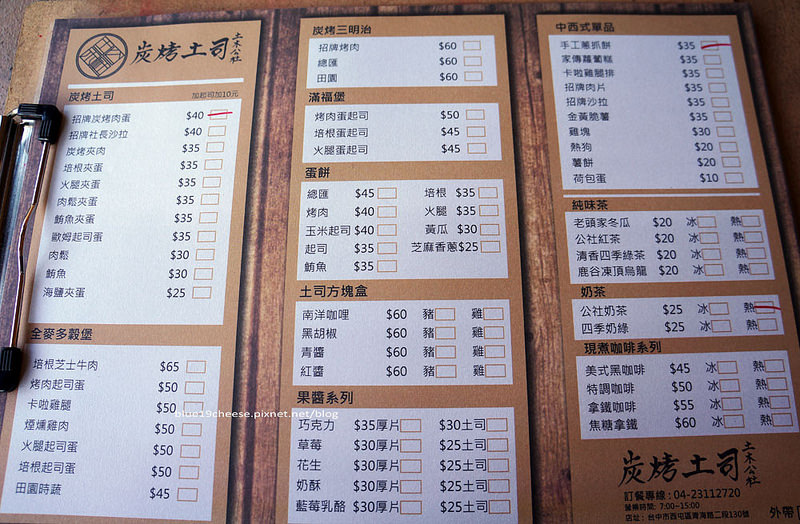 炭烤土司 土木公社
炭烤土司 加起司加10元
招牌炭烤肉蛋 $40
招牌社長沙拉 $40
炭烤夾肉 $35
培根夾蛋 $35
火腿夾蛋 $35
肉鬆夾蛋 $35
鮪魚夾蛋 $35
歐姆起司蛋 $35
肉鬆 $30
鮪魚 $30
海鹽夾蛋 $25
全麥多穀堡
培根芝士牛肉 $65
烤肉起司蛋 $50
卡啦雞腿 $50
煙燻雞肉 $50
火腿起司蛋 $50
培根起司蛋 $50
田園時蔬 $45
炭烤三明治
招牌烤肉 $60
總匯 $60
田園 $60
滿福堡
烤肉蛋起司 $50
培根蛋起司 $45
火腿蛋起司 $45
蛋餅
總匯 $45 培根 $35
烤肉 $40 火腿 $35
玉米起司 $40 黃瓜 $30
起司 $35 芝麻香蔥 $25
鮪魚 $35
土司方塊盒
南洋咖哩 $60 豬 雞
黑胡椒 $60 豬 雞
青醬 $60 豬 雞
紅醬 $60 豬 雞
果醬系列
巧克力 $35厚片 $30土司
草莓 $30厚片 $25土司
花生 $30厚片 $25土司
奶酥 $30厚片 $25土司
藍莓乳酪 $30厚片 $25土司
中西式單品
手工蔥抓餅 $35
家傳蘿蔔糕 $35
卡啦雞腿排 $35
招牌肉片 $35
招牌沙拉 $35
金黃脆薯 $35
雞塊 $30
熱狗 $20
薯餅 $20
荷包蛋 $10
純味茶
老頭家冬瓜 $20 冰 熱
公社紅茶 $20 冰 熱
清香四季綠茶 $20 冰 熱
鹿谷凍頂烏龍 $20 冰 熱
奶茶
公社奶茶 $25 冰 熱
四季奶綠 $25 冰 熱
現煮咖啡系列
美式黑咖啡 $45 冰 熱
特調咖啡 $50 冰 熱
拿鐵咖啡 $55 冰 熱
焦糖拿鐵 $60 冰 熱
炭烤土司 土木公社
訂餐專線:04-23112720
營業時間: 7:00~15:00
店址:台中市西屯區青海路二段130號
外帶
blue19cheese.pixnet.net/blog